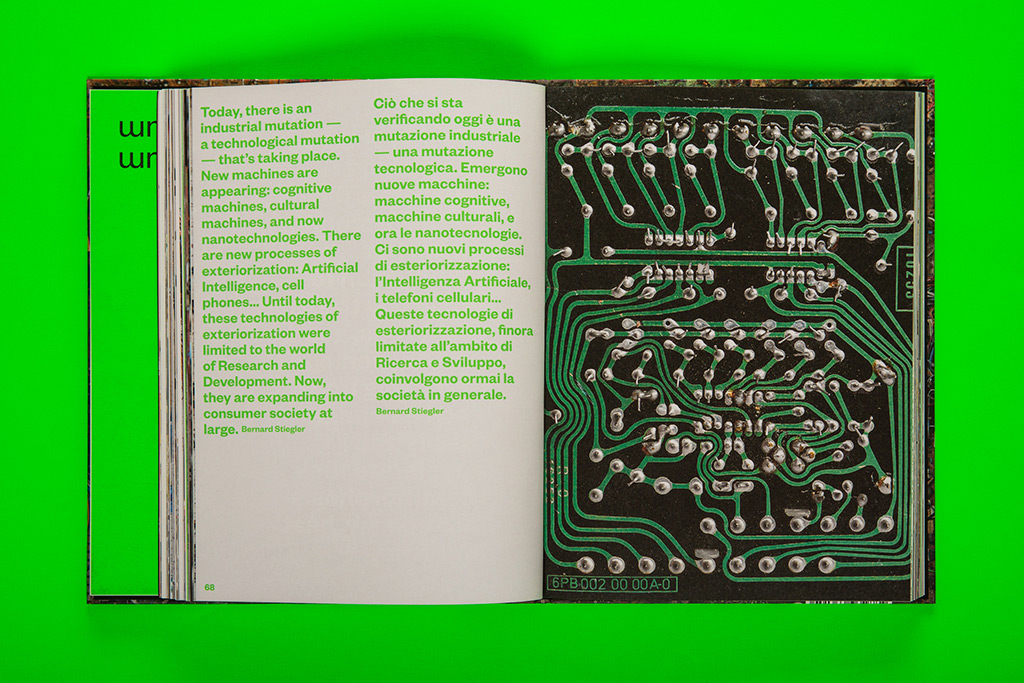 Today, there is an
industrial mutation —
a technological mutation
— that's taking place.
New machines are
appearing: cognitive
machines, cultural
machines, and now
nanotechnologies. There
are new processes of
exteriorization: Artificial
Intelligence, cell
phones... Until today,
these technologies of
exteriorization were
limited to the world
of Research and
Development. Now,
they are expanding into
consumer society at
large. Bernard Stiegler
Ciò che si sta
verificando oggi è una
mutazione industriale
— una mutazione
tecnologica. Emergono
nuove macchine:
macchine cognitive,
macchine culturali, e
ora le nanotecnologie.
Ci sono nuovi processi
di esteriorizzazione:
l'Intelligenza Artificiale,
i telefoni cellulari...
Queste tecnologie di
esteriorizzazione, finora
limitate all'ambito di
Ricerca e Sviluppo,
coinvolgono ormai la
società in generale.
Bernard Stiegler
68
6PB-002 00 00A-0